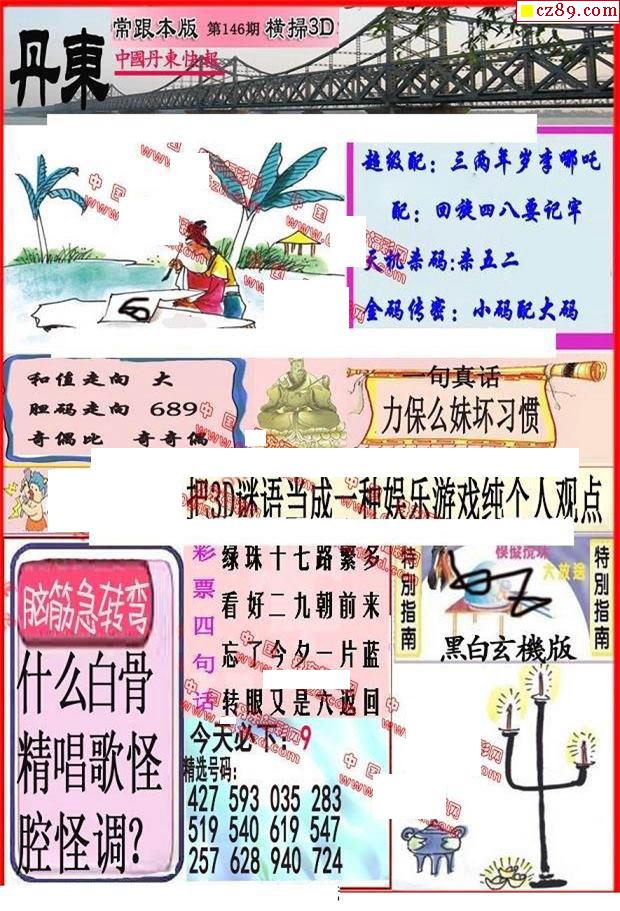 cz89.com
常跟本版 第146期 横掃3D
丹東
中國丹東快報
超级配：三两年岁李哪吒
配：回旋四八要记牢
天机杀码:杀五二
金码传密：小码配大码
和值走向 大
胆码走向 689
奇偶比 奇奇偶
一句真话
力保么妹坏习惯
把3D谜语当成一种娱乐游戏纯个人观点
脑筋急转弯
什么白骨
精唱歌怪
腔怪调？
彩票四句话
绿珠十七路繁多
看好二九朝前来
忘了今夕一片蓝
转眼又是六返回
今天必下：9
精选号码：
427 593 035 283
519 540 619 547
257 628 940 724
特别指南
模拟搅珠
大放送
特别指南
黑白玄機版